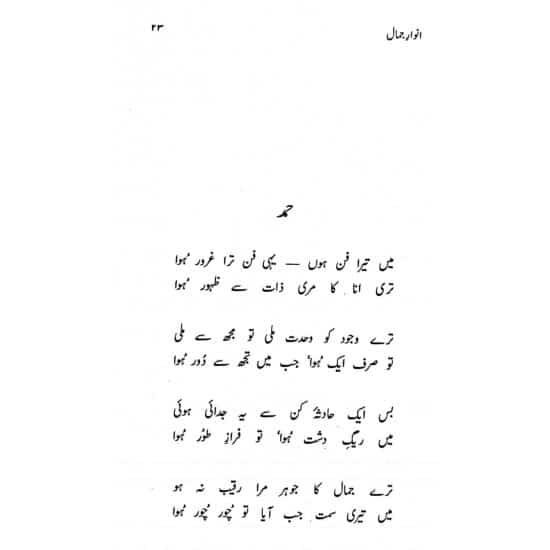 انوارِ جمال
۲۳
حمد
میں تیرا فن ہوں — یہی فن ترا غرور ہُوا
تری انا کا مری ذات سے ظہور ہُوا
ترے وجود کو وحدت ملی تو مجھ سے ملی
تو صرف ایک ہُوا، جب میں تجھ سے دُور ہُوا
بس ایک حادثۂ کن سے یہ جدائی ہوئی
میں ریگِ دشت ہُوا، تو فرازِ طُور ہُوا
ترے جمال کا جوہر مرا رقیب نہ ہو
میں تیری سمت جب آیا تو چُور چُور ہُوا